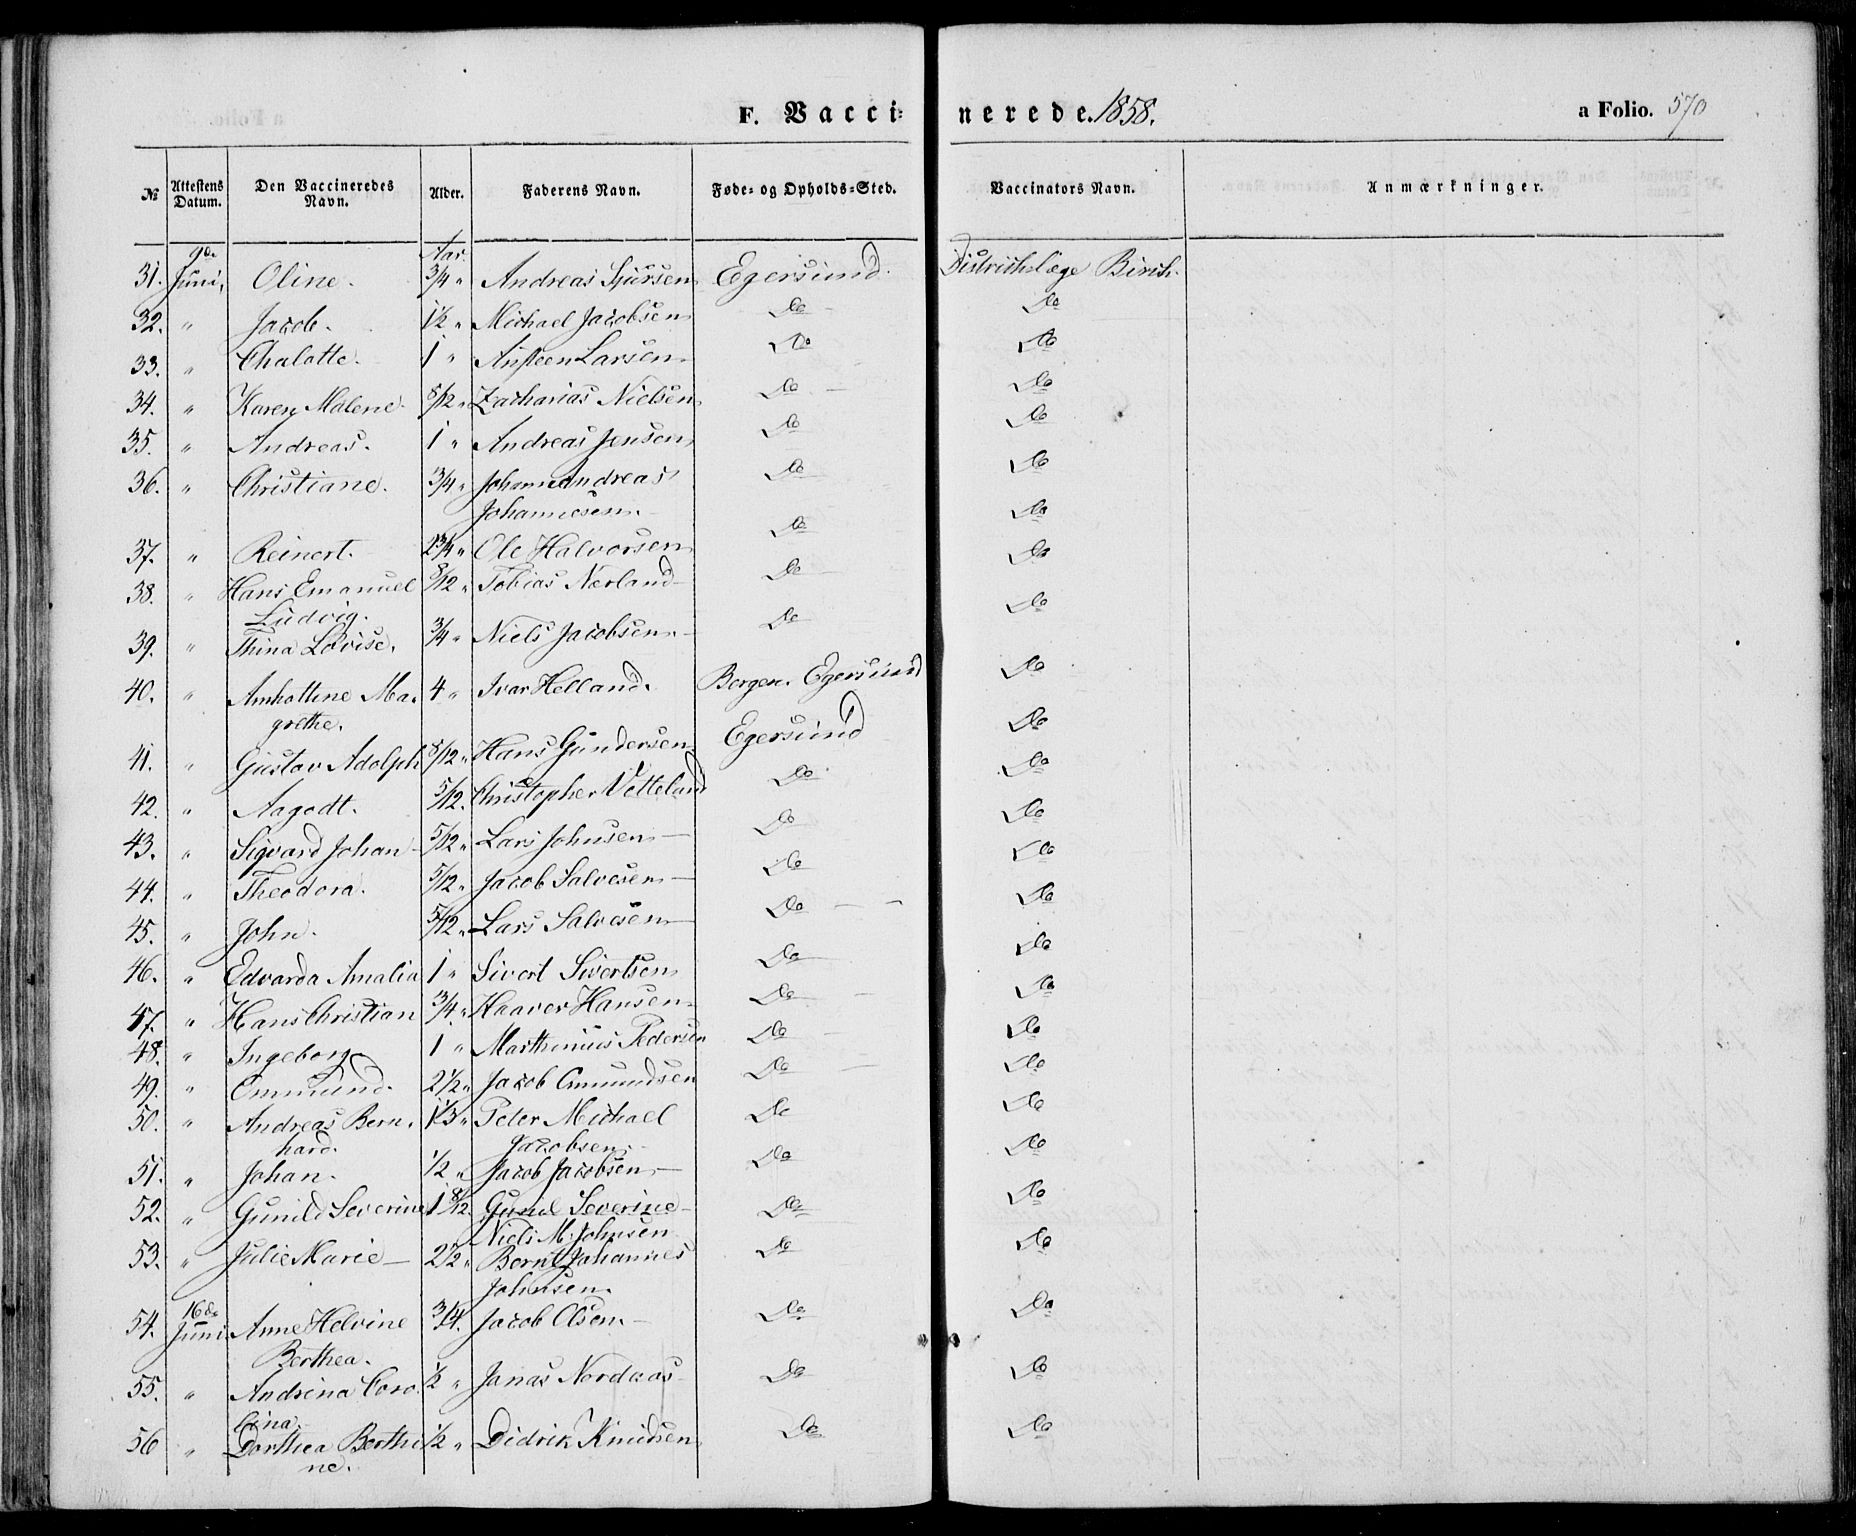 F. Vaccinerede. 1858. a Folio. 570
№ Attestens Datum. Den Vaccineredes Navn. Alder. Faderens Navn. Føde- og Opholds-Sted. Vaccinators Navn. Anmærkninger.
9de Aar
31. Juni, Oline. 3/4 " Andreas Sjursen Egersund. Distriktslæge Birch.
32. " Jacob. 1 1/2 " Michael Jacobsen Do Do
33. " Chalotte. 1 " Ansteen Larsen Do Do
34. " Karen Malene. 8/12 " Zacharias Nielsen Do Do
35. " Andreas. 1 " Andreas Jensen Do Do
36. " Christiane. 3/4 " Johan Andreas Do Do
Johannesen. Do
37. " Reinert. 2 3/4 " Ole Halvorsen Do Do
38. " Hans Emanuel 8/12 " Tobias Nerland Do
Ludvig. Do
39. " Thina Lovise. 3/4 " Niels Jacobsen. Do
40. " Anhattine Ma- 4 " Ivar Helland. Bergen. Egersund Do
grethe.
41. " Gustav Adolph 8/12 " Hans Gundersen Egersund Do
42. " Aagodt. 5/12. Christopher Vetteland Do Do
43. " Sigvard Johan 5/12 " Lars Johnsen Do Do
44. " Theodora. 5/12 " Jacob Salvesen Do Do
45. " John. 5/12 " Lars Salvesen Do Do
46. " Edvarda Amalia 1 " Sivert Sivertsen Do Do
47. " Hans Christian 3/4 " Haaver Hansen Do Do
48. " Ingeborg 1 " Marthinius Pedersen Do Do
49. " Ommund. 2 1/2 " Jacob Ommundsen Do Do
50. " Andreas Bern- 1 1/3 " Peter Michael Do Do
hard. Jacobsen
51. " Johan. 1/2 " Jacob Jacobsen Do Do
52. " Gunild Severine 1 8/12. Gunil Severine Do Do
Niels M. Johnsen
53. " Julie Marie 2 1/2 " Bernt Johannes Do Do
Johnsen.
16de
54. Juni Anne Helvine 3/4. Jacob Olsen. Do Do
Berthea.
55. " Andrina Caro- 1/2 " Jonas Nordaas Do Do
lina
56 " Dorthea Berthi- 1/2 " Didrik Knudsen Do Do
ne.